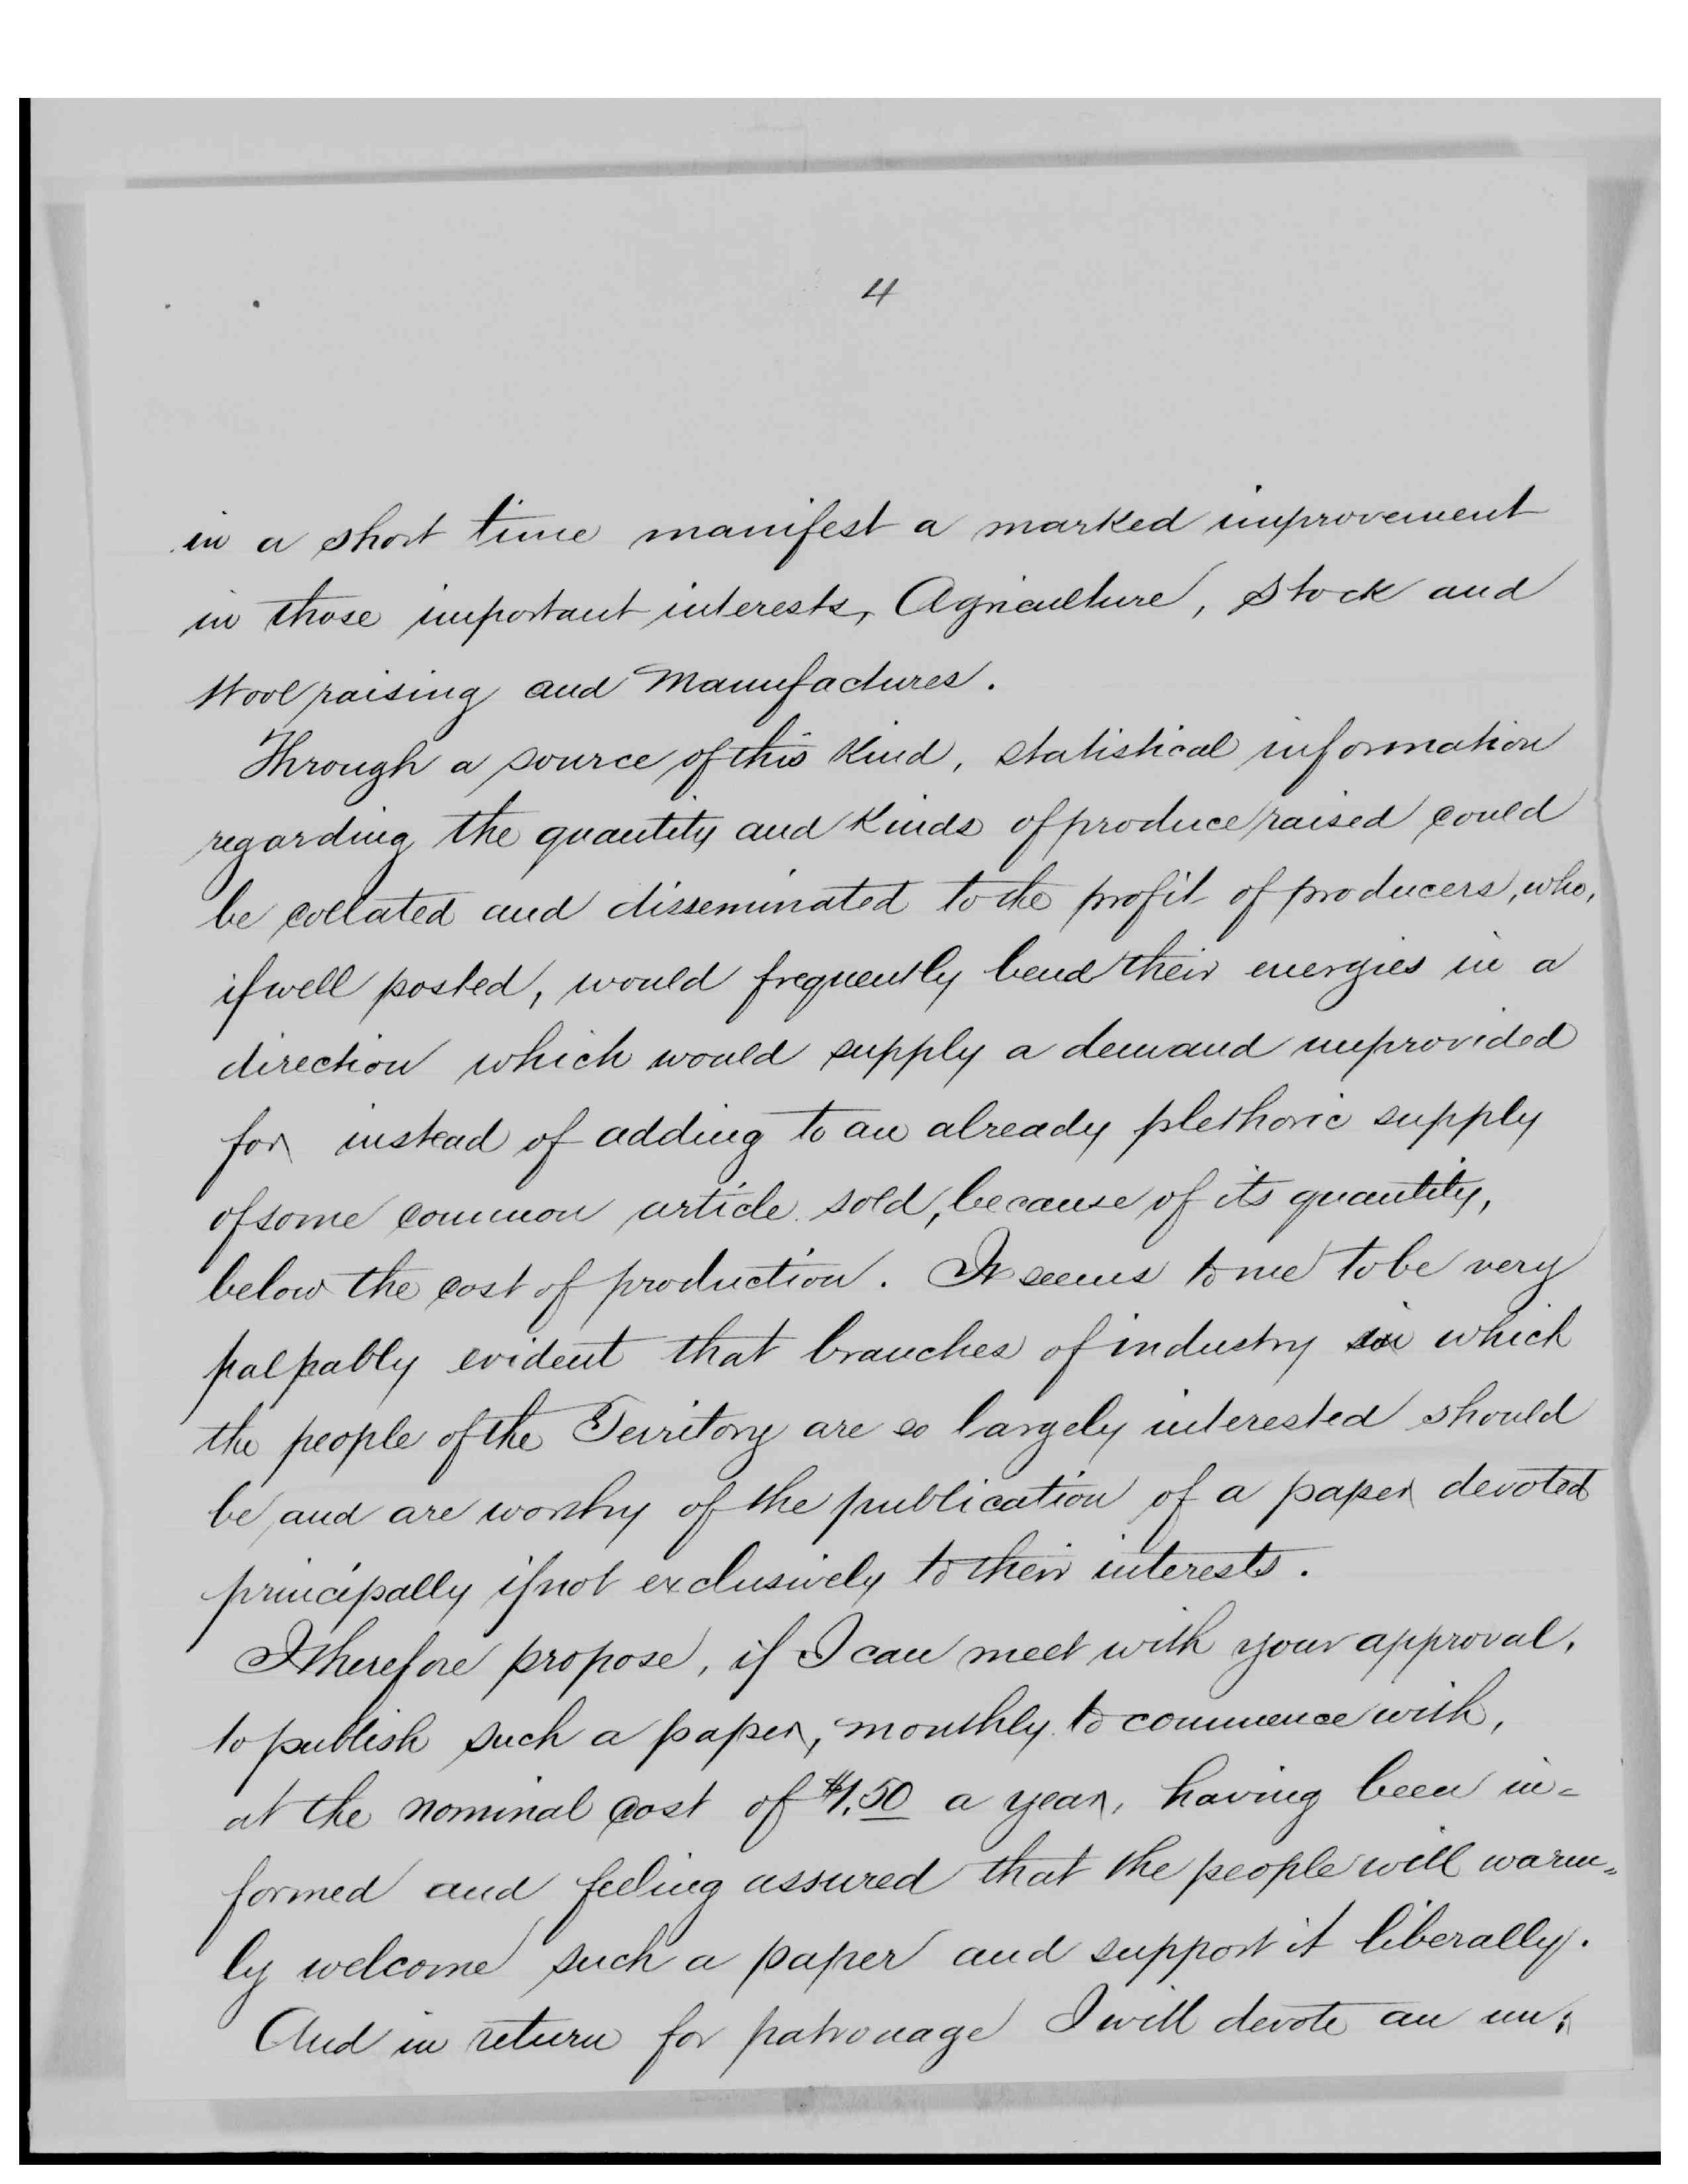 4
in a short time manifest a marked improvement
in those important interests, Agriculture, Stock and
Wool raising and Manufactures.
Through a source of this kind, statistical information
regarding the quantity and kinds of produce raised could
be collated and disseminated to the profit of producers, who,
if well posted, would frequently bend their energies in a
direction which would supply a demand unprovided
for instead of adding to an already plethoric supply
of some common article sold, because of its quantity,
below the cost of production. It seems to me to be very
palpably evident that branches of industry in which
the people of the Territory are so largely interested should
be and are worthy of the publication of a paper devoted
principally if not exclusively to their interests.
I therefore propose, if I can meet with your approval,
to publish such a paper, monthly to commence with,
at the nominal cost of $1.50 a year, having been in=
formed and feeling assured that the people will warm=
ly welcome such a paper and support it liberally.
And in return for patronage I will devote an un=